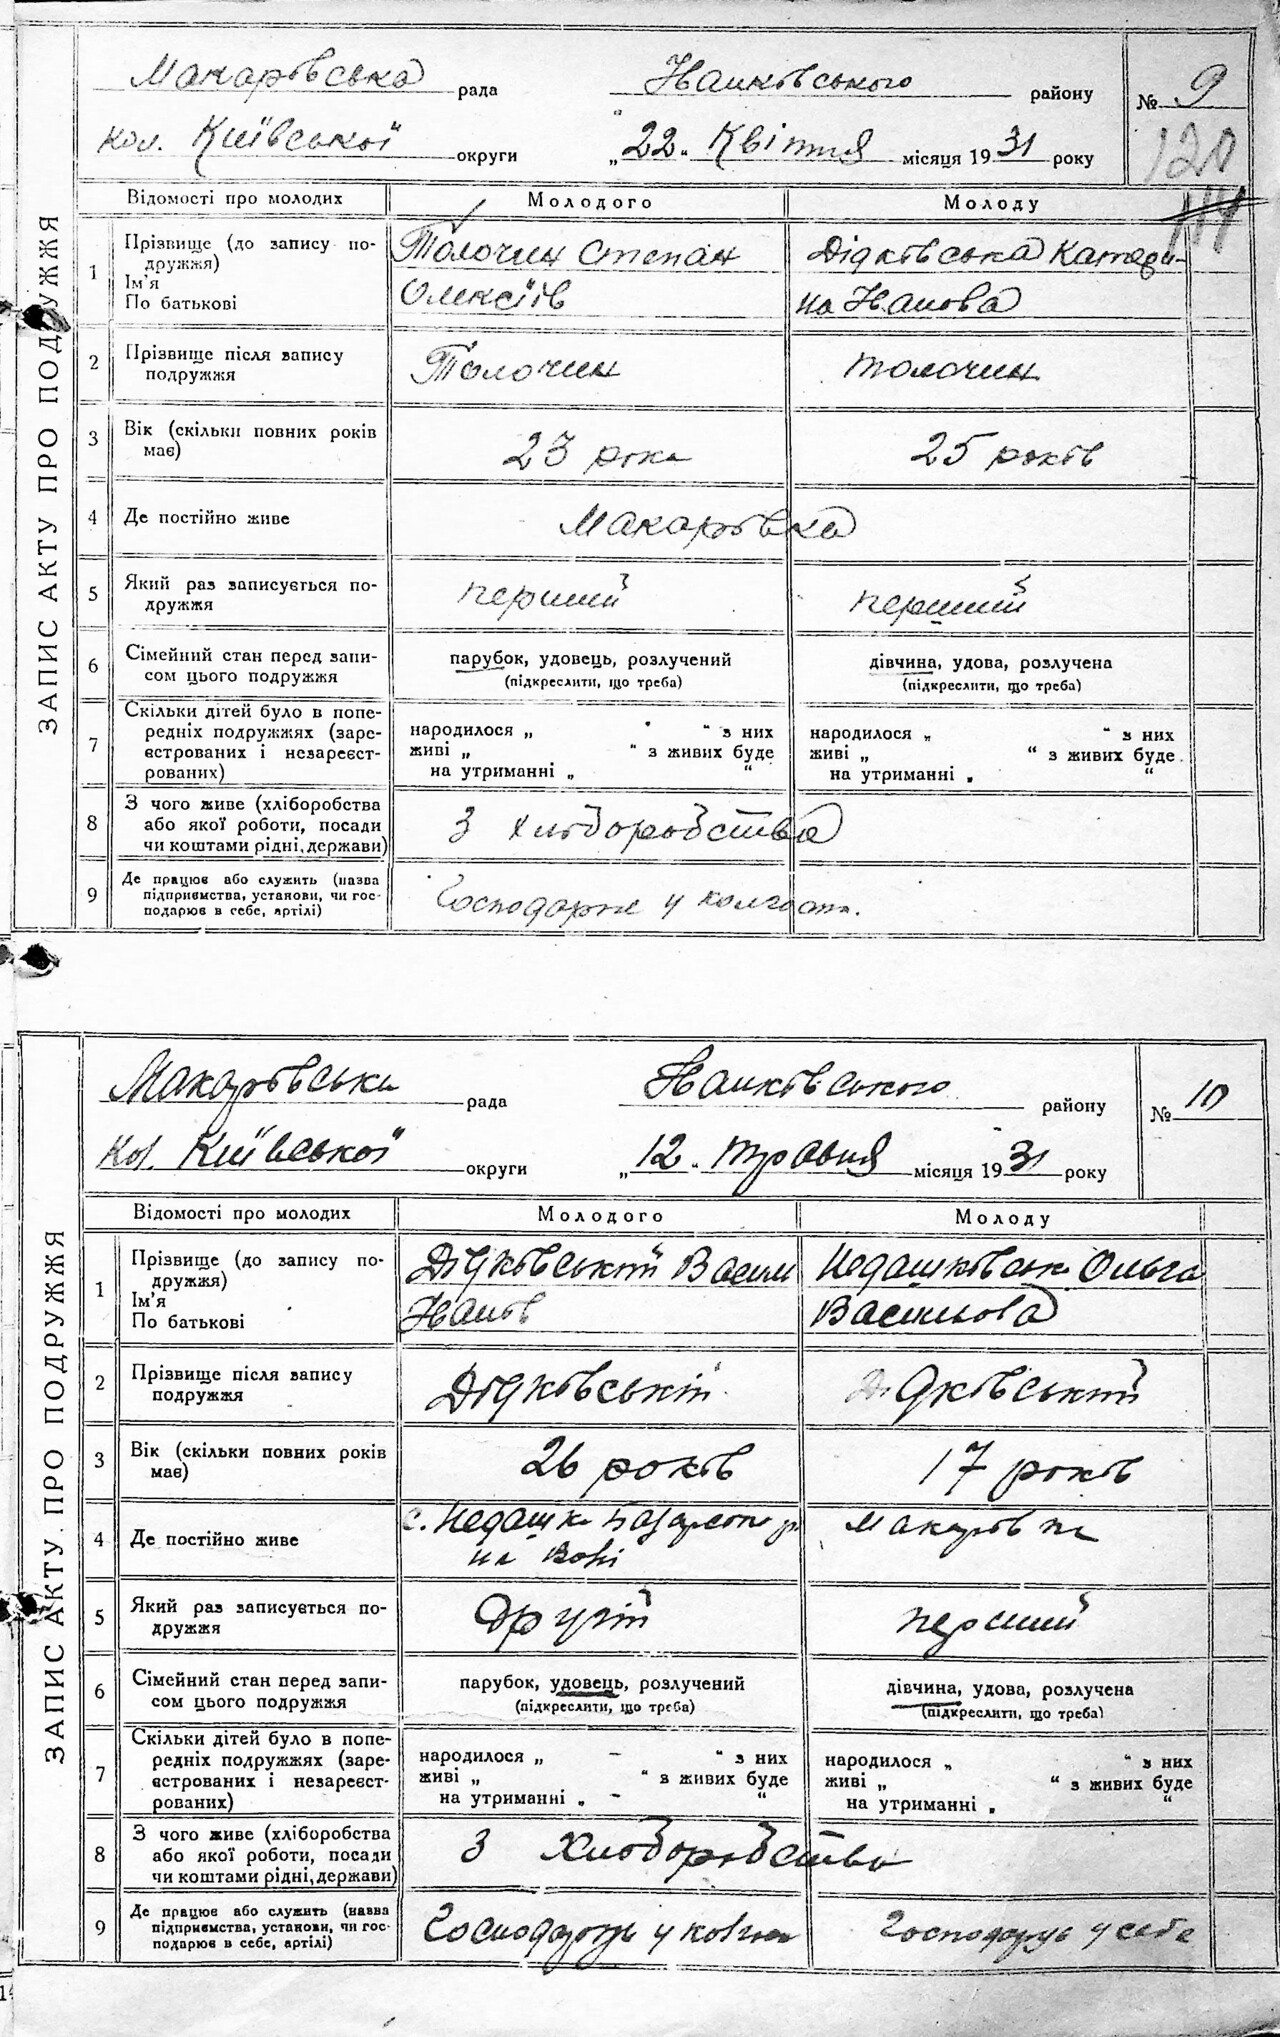 ЗАПИС АКТУ ПРО ПОДРУЖЖЯ
Макарівська рада Іванківського району № 9
кол. Київської округи „22" Квітня місяця 1931 року
120
111
Відомості про молодих Молодого Молоду
1 Прізвище (до запису по-
дружжя)
Ім'я
По батькові
Толочин Степан
Олексіїв
Дідківська Катери-
на Іванова
2 Прізвище після запису
подружжя
Толочин толочин
3 Вік (скільки повних років
має)
23 роки 25 років
4 Де постійно живе Макарівка
5 Який раз записується по-
дружжя
перший перший
6 Сімейний стан перед запи-
сом цього подружжя
парубок, удовець, розлучений
(підкреслити, що треба)
дівчина, удова, розлучена
(підкреслити, що треба)
7 Скільки дітей було в попе-
редніх подружжях (заре-
єстрованих і незареєст-
рованих)
народилося „ " з них
живі „ " з живих буде
на утриманні „ "
народилося „ " з них
живі „ " з живих буде
на утриманні „ "
8 З чого живе (хліборобства
або якої роботи, посади
чи коштами рідні, держави)
З хліборобства
9 Де працює або служить (назва
підприємства, установи, чи гос-
подарює в себе, артілі)
Господарює у колгосп.
ЗАПИС АКТУ ПРО ПОДРУЖЖЯ
Макарівська рада Іванківського району № 10
кол. Київської округи „12" травня місяця 1931 року
Відомості про молодих Молодого Молоду
1 Прізвище (до запису по-
дружжя)
Ім'я
По батькові
Дідківський Васил
Іванів
Недашківська Ольга
Васильова
2 Прізвище після запису
подружжя
Дідківській Дідківський
3 Вік (скільки повних років
має)
26 років 17 років
4 Де постійно живе
с. Недашки
на Волі
Макарівка
5 Який раз записується по-
дружжя
Другій перший
6 Сімейний стан перед запи-
сом цього подружжя
парубок, удовець, розлучений
(підкреслити, що треба)
дівчина, удова, розлучена
(підкреслити, що треба)
7 Скільки дітей було в попе-
редніх подружжях (заре-
єстрованих і незареєст-
рованих)
народилося „ – " з них
живі „ " з живих буде
на утриманні „ – "
народилося „ " з них
живі „ " з живих буде
на утриманні „ "
8 З чого живе (хліборобства
або якої роботи, посади
чи коштами рідні, держави)
З Хліборобства
9 Де працює або служить (назва
підприємства, установи, чи гос-
подарює в себе, артілі)
Господарує у Господарує у себе
14